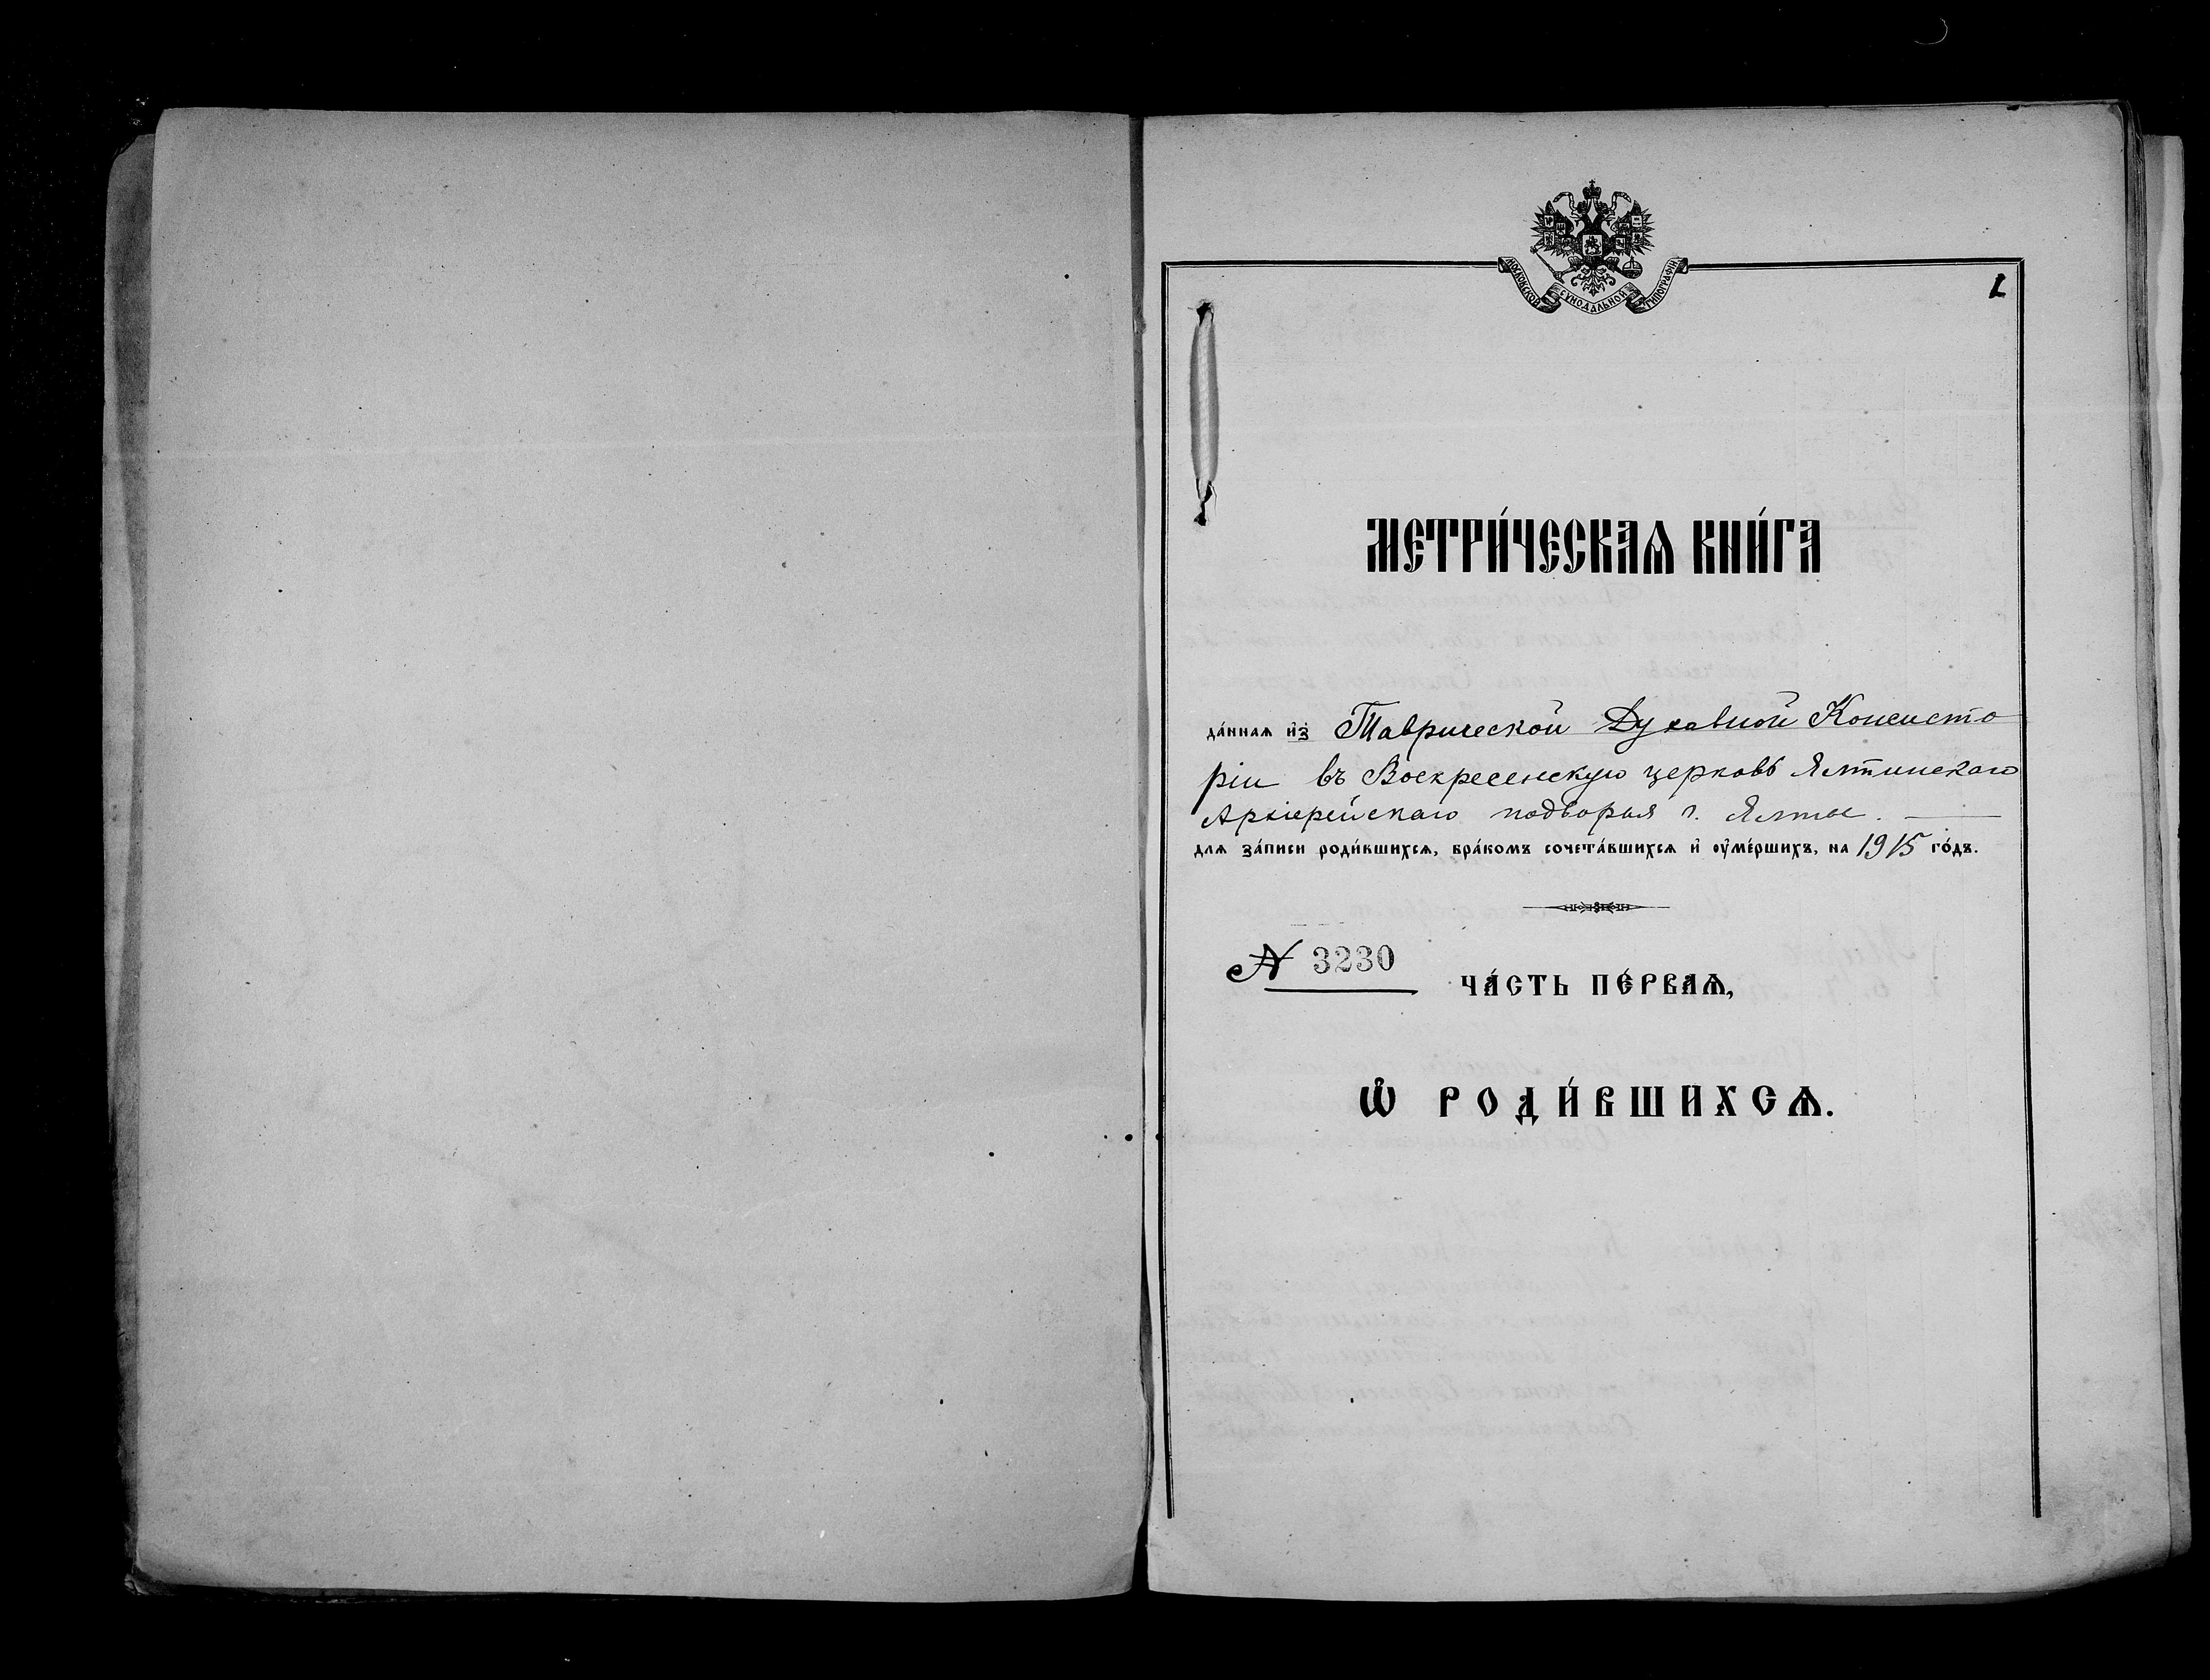 МОСКОВСКОЙ СѴНОДАЛЬНОЙ ТИПОГРАФІИ
1
МЕТРИ́ЧЕСКАѦ КНИ́ГА
да́ннаѧ и҆з̾ Таврической Духовной Консисто
ріи въ Воскресенскую церковь Ялтинскаго
Архіерейскаго подворья г. Ялты.
для за́писи роди́вшихсѧ, бра́комъ сочета́вшихсѧ и҆ оу҆ме́ршихъ, на 1915 го́дъ.
№ 3230
ЧА́СТЬ ПЕ́РВАѦ,
Ѡ҆ РОДИ́ВШИХСѦ.